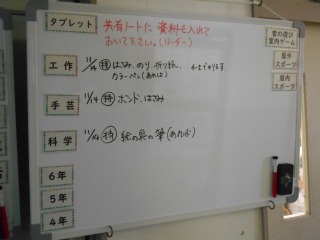 タブレット 共有ノートに資料を入れて
おいて下さい。(リーダー)
工作 11/14 持 はさみ、のり、折り紙、
カラーペン(あれば)
手芸 11/14 持 ボンド、はさみ
科学 11/14 持 絵の具の筆(あれば)
6年
5年
4年
昔の遊び
室内ゲーム
屋外
スポーツ
屋内
スポーツ